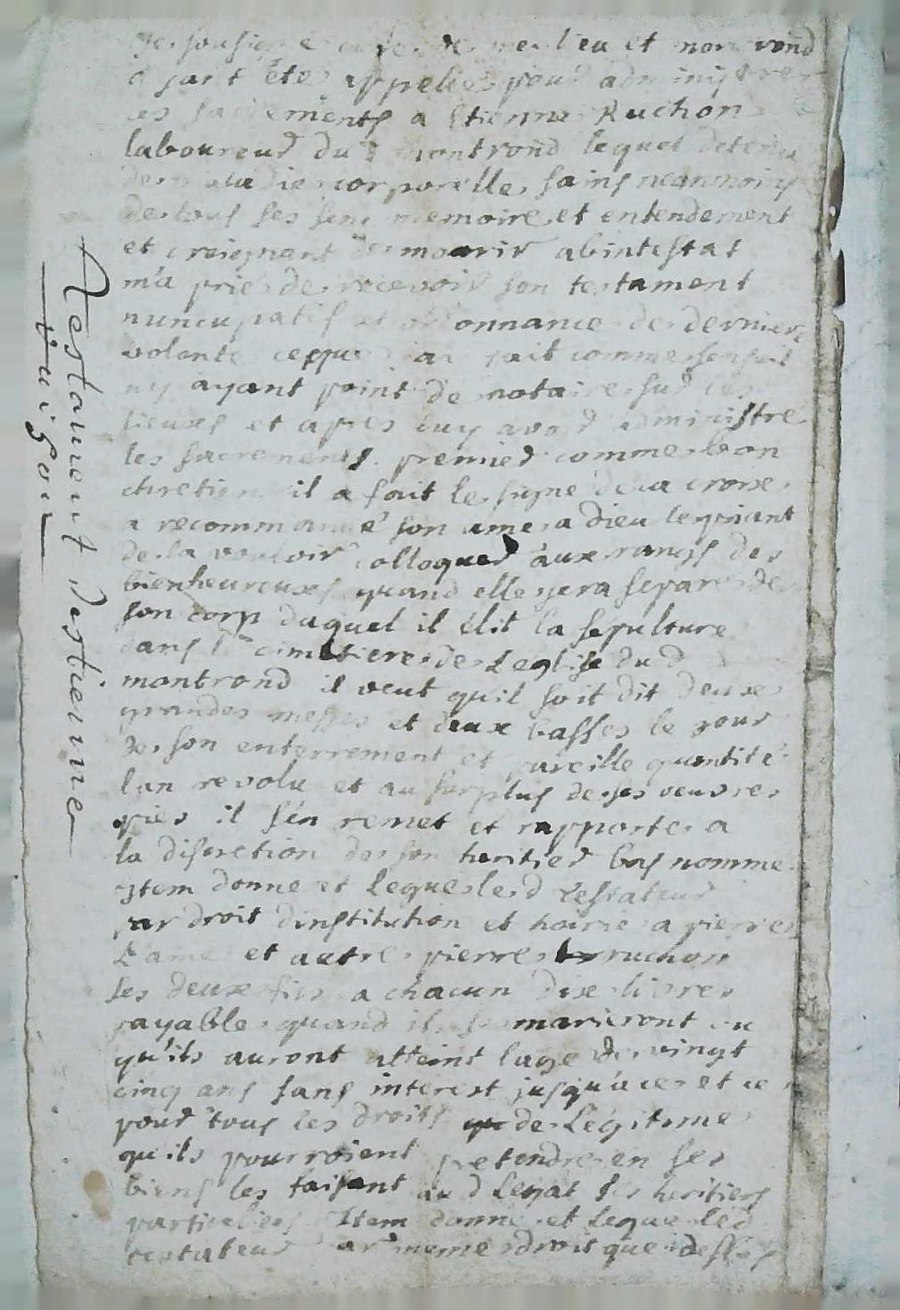 Je sousigne cure de merlieu et montrond
ayant étes appelles pour administrer
les sacrements a Etienne Ruchon
laboureur dud montrond lequel detenu
de maladie corporelle sains neanmoins
de tous ses sens memoire et entendement
et creignant de mourir abintestat
m'a prié de recevoir son testament
nuncupatif et ordonnance de derniere
volonte ce que jai fait comme sensuit
ny ayant point de notaire sur les
lieux et apres luy avoir administre
les sacrements premier comme bon
chretien il a fait le signe de la croix
a recommandé son ame a Dieu le priant
de la vouloir colloquer aux rangs des
bienheureux quand elle sera separe de
son corp duquel il Elit la sepulture
dans le cimetiere de Leglise dud
montrond il veut quil soit dit deux
grandes messes et deux basses le jour
de son enterrement et pareille quantité
lan revolu et au surplus de ses oeuvres
pies il s'en remet et rapporte a
la discretion de son heritier bas nomme
Item donne et Legue led Testateur
par droit dinstitution et hoirie a pierre
Laine et autre pierre ruchon
ses deux fils a chacun dix livres
payable quand ils se marieront ou
qu'ils auront atteint lage de vingt
cinq ans sans interest jusqu'a ce et ce
pour tous les droits de Légitime
quils pourroient pretendre en ses
biens les faisant aud Legat ses heritiers
particuliers Item donne et Legue led
testateur par meme droit que dessus
Testament destienne